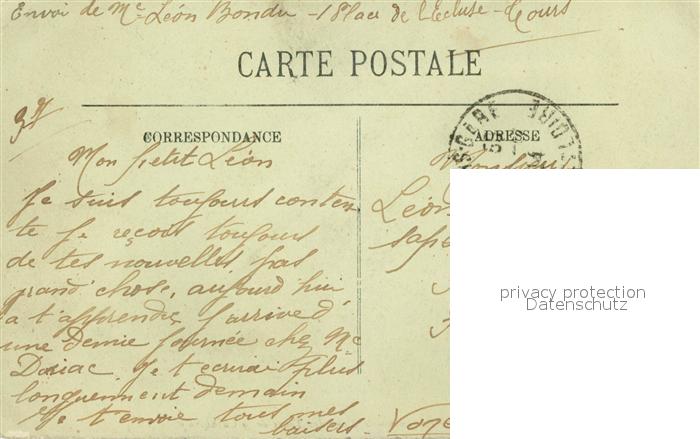 Envoi de Me Léon Bondu - 18 Place de l'Ecluse - Tours
CARTE POSTALE
CORRESPONDANCE
ADRESSE
Mon petit Léon
Je suis toujours conten
te je reçois toujours
de tes nouvelles pas
grand chose, aujourd hui
a t'apprendre j'arrive d'
une demie journée chez Me
Je t'ecrirai plus
longuement demain
Je t'envoie tous mes
baisers
Monsieur
Léon
sape
privacy protection
Datenschutz